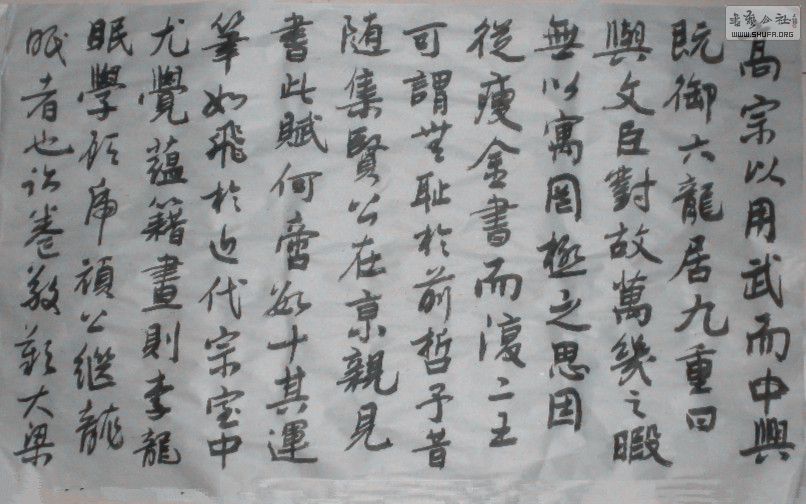 高宗以用武而中興
既御六龍居九重日
與文臣對故萬幾之暇
無以寓罔極之思因
從瘦金書而復二王
可謂無耻於前哲予昔
随集賢公在京親見
書此賦何啻數十其運
筆如飛於近代宗室中
尤覺蘊籍畫則李龍
眠學顧虎頭公繼龍
眠者也訟卷敬 大梁
書藝公社
WWW.SHUFA.ORG